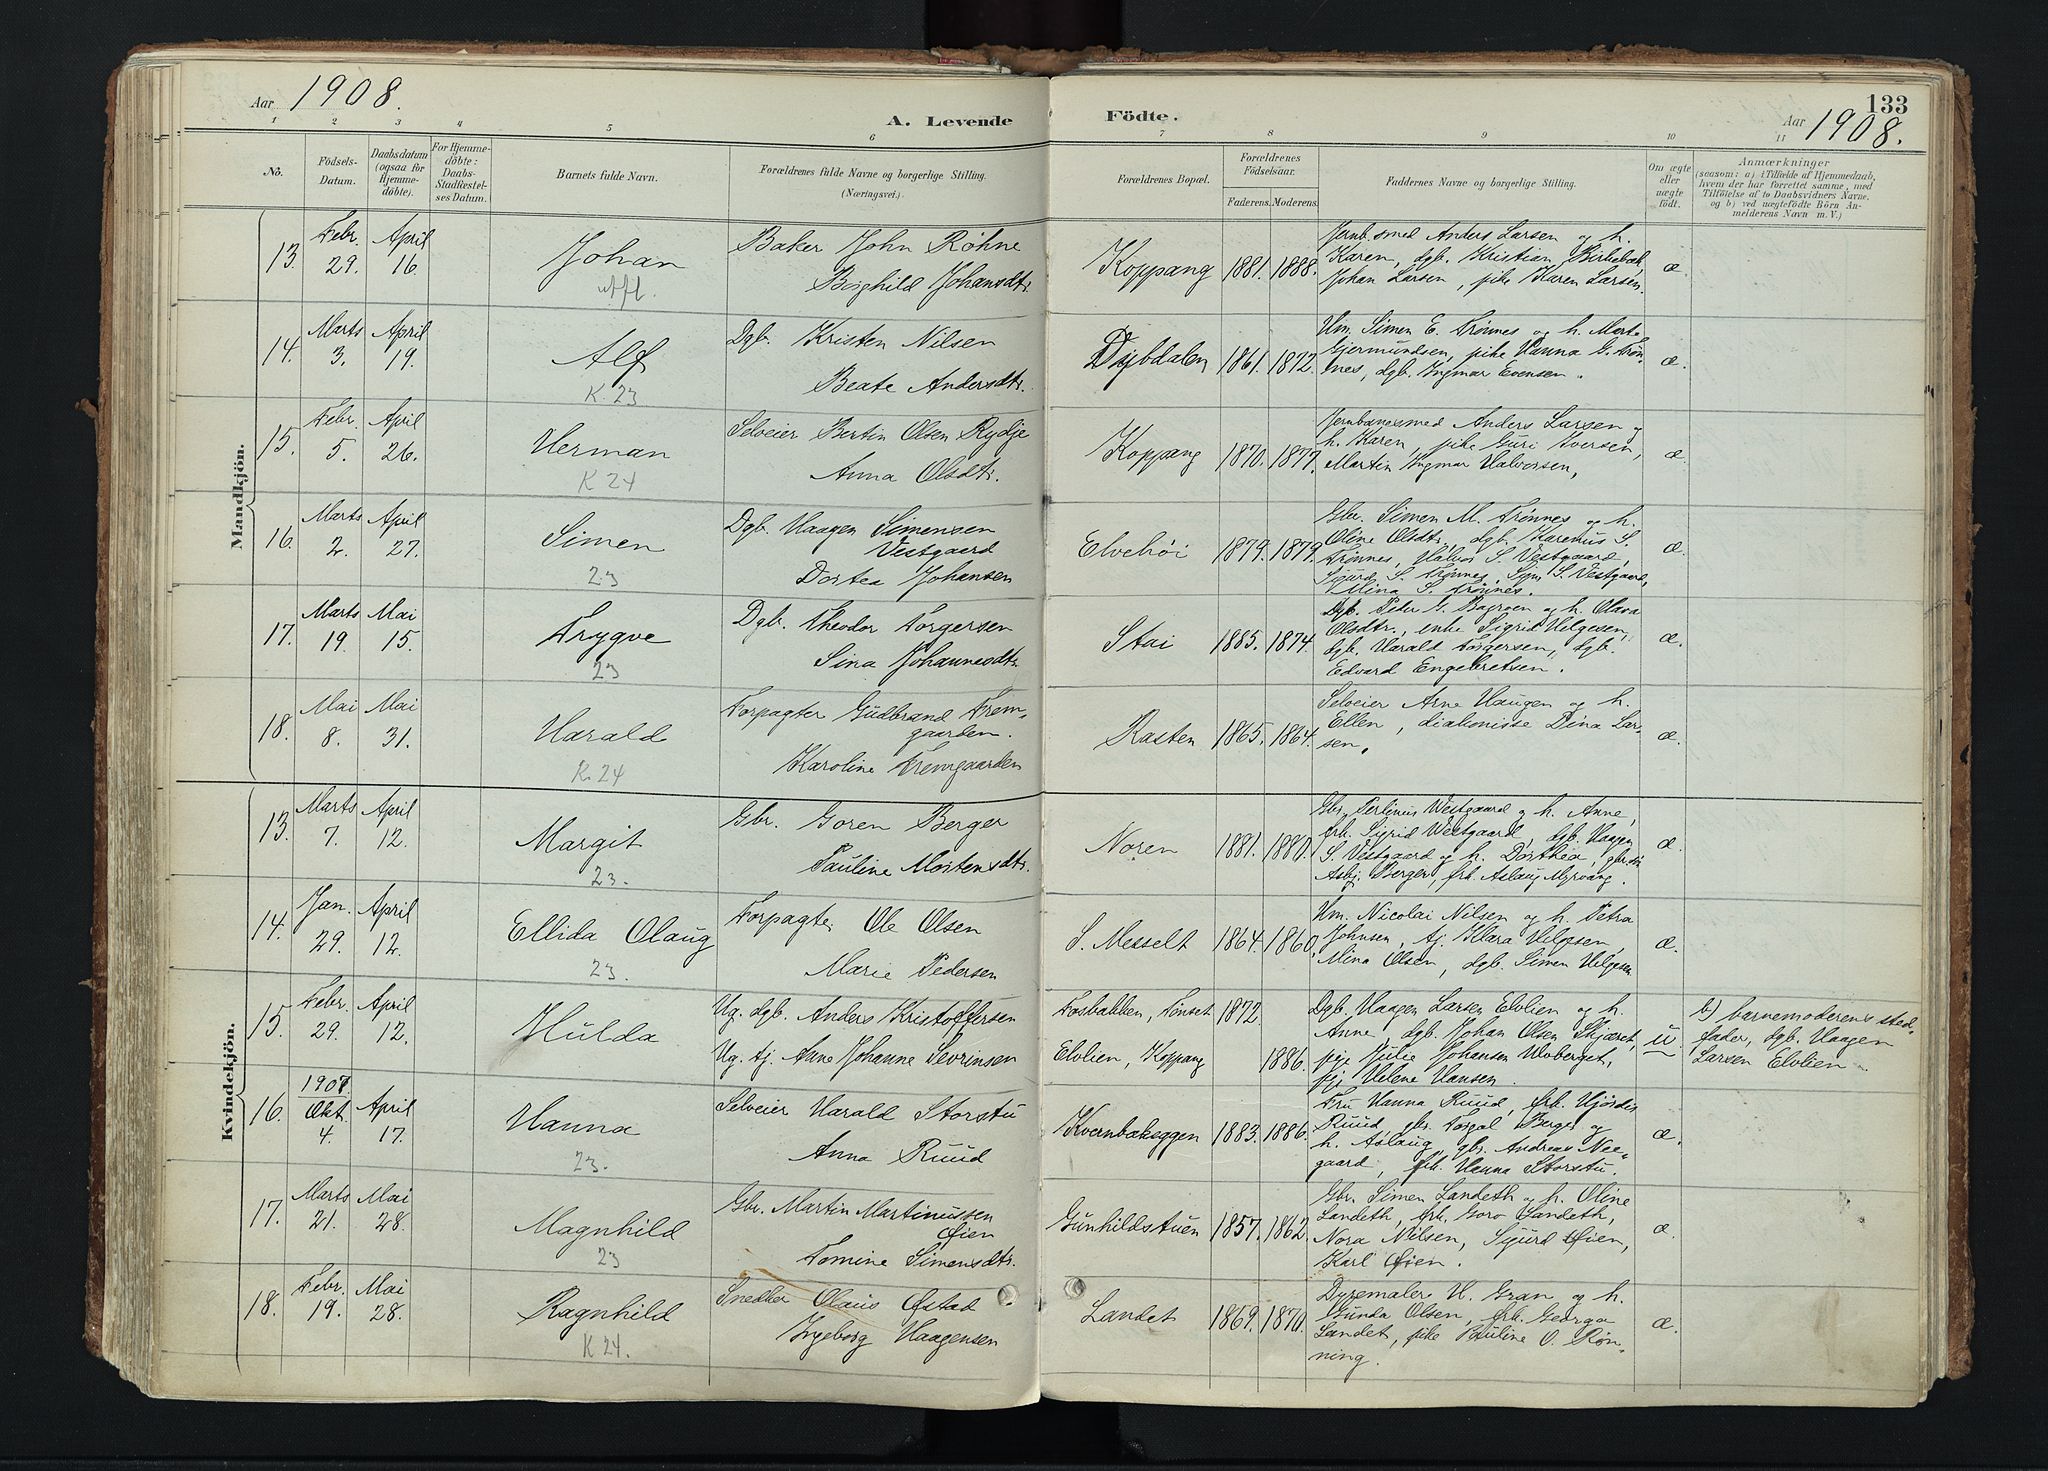 Aar 1908.
A. Levende Födte.
133
Aar 1908.
1 2 3 4 5 6 7 8 9 10 11
No.
Födsels-
Datum.
Daabsdatum
(ogsaa for
Hjemme-
döbte).
For Hjemme-
döbte:
Daabs-
Stadfæstel-
ses Datum.
Barnets fulde Navn.
Forældrenes fulde Navne og borgerlige Stilling.
(Næringsvei.)
Forældrenes Bopæl.
Forældrenes
Födselsaar.
Faderens. Moderens.
Faddernes Navne og borgerlige Stilling.
Om ægte
eller
uægte
födt.
Anmærkninger
(saasom: a) i Tilfælde af Hjemmedaab,
hvem der har forrettet samme, med
Tilföielse af to Daabsvidners Navne,
og b) ved uægtefödte Börn An-
melderens Navn m. V.)
Mandkjön.
13. Febr. 29. April 16. Johan
Baker John Röhne
Borghild Johansdtr.
Koppang 1881. 1888.
Jernb.smed Anders Larsen og h.
Karen, dgb. Kristian Birkebæk,
Johan Larsen, pike Karen Larsen.
æ.
14. Marts 3. April 19. Alf
K. 23
Dgb. Kristen Nilsen
Beate Andersdtr.
Dybdalen 1861. 1872.
Hm. Simen E. Trønnes og h. Marte
Gjermundsen, pike Hanna G. Trøn-
nes, dgb. Ingmar Evensen.
æ.
15. Febr. 5. April 26. Herman
K 24
Selveier Bertin Olsen Rydje
Anna Olsdtr.
Koppang 1870. 1877.
Jernbanesmed Anders Larsen og
h. Karen, pike Guri Iversen,
Martin Ingmar Halvorsen,
æ.
16. Marts 2. April 27. Simen
23
Dgb. Haagen Simensen
Vestgaard
Dortea Johansen
Elvehøi 1879. 1879.
Gbr. Simen M. Trønnes og h.
Oline Olsdtr., dgb. Karenus S.
Trønnes, Halvor S. Vestgaard,
Sigurd S. Trønnes, Sgm. S. Vestgaard,
Mina S. Trønnes.
æ.
17. Marts 19. Mai 15. Trygve
23
Dgb. Theodor Torgersen
Sina Johannesdtr.
Stai 1885. 1874.
Dgb. Peder G. Bagroen og h. Olava
Olsdtr., enke Sigrid Helgesen,
dgb. Harald Torgersen, dgb.
Edvard Engebretsen.
æ.
18. Mai 8. Mai 31. Harald
K. 24
Forpagter Gudbrand Frem-
gaarden.
Karoline Fremgaarden
Rasten 1865. 1864.
Selveier Arne Haugen og h.
Ellen, diakonisse Dina Lar-
sen.
æ.
Kvindekjön.
13. Marts 7. April 12. Margit
23.
Gbr. Goren Berger
Pauline Mortensdtr.
Noren 1881. 1880.
Gbr. Perlinus Westgaard og h. Anne,
frk. Sigrid Westgaard, dgb. Haagen
S. Vestgaard og h. Dorthea,
Asbj. Berger, frk. Aslaug Myrvang.
æ.
14. Jan. 29. April 12. Ellida Olaug
23.
Forpagter Ole Olsen
Marie Pedersen
S. Messelt 1864. 1860.
Hm. Nicolai Nilsen og h. Petra
Johnsen, tj. Klara Helgesen,
Mina Olsen, dgb. Simen Helgesen
æ.
15. Febr. 29. April 12. Hulda
Ug. dgb. Anders Kristoffersen
Ug. tj. Anne Johanne Sevrinsen
Fosbakken, Tönset 1872.
Elvlien, Koppang 1886.
Dgb. Haagen Larsen Elvlien og h.
Anne, dgb. Johan Olsen Skjæret,
pige Julie Johansen Ulvberget,
pige Helene Hansen.
u.
b) barnemoderens sted-
fader, dgb. Haagen
Larsen Elvlien.
16. 1907 Okt. 4. April 17. Hanna
23.
Selveier Harald Storstu
Anna Ruud
Kvernbækeggen 1883. 1886.
Fru Hanna Ruud, frk. Hjördis
Ruud, gbr. Torgal Berger og
h. Aslaug, gbr. Andreas Nee-
gaard, frk. Hanna Storstu.
æ.
17. Marts 21. Mai 28. Magnhild
23
Gbr. Martin Martinussen
Øien
Tomine Simensdtr.
Gunhildstuen 1857. 1862.
Gbr. Simen Landeth og h. Oline
Landeth, frk. Goro Landeth,
Nora Nilsen, Sigurd Øien,
Karl Øien.
æ.
18. Febr. 19. Mai 28. Ragnhild
K 24.
Snedker Olaus Østad
Ingeborg Haagensen
Landet 1869. 1870.
Dyremaler H. Gran og h.
Gunda Olsen, frk. Georga
Landet, pike Pauline O. Røn-
ning.
æ.